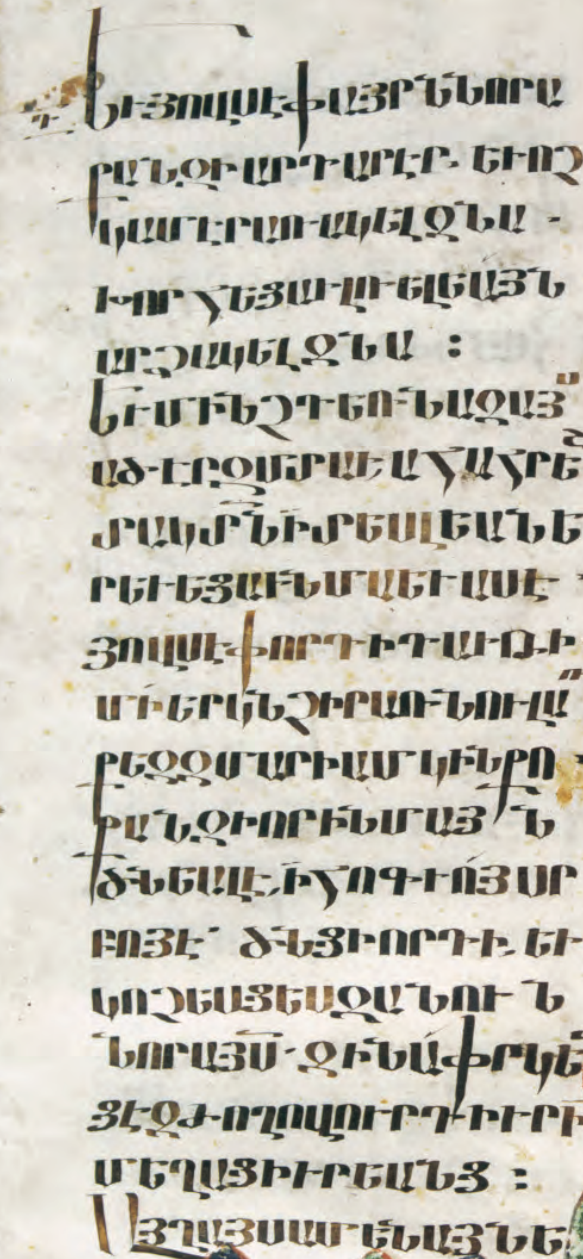 Եւ յովսէփ այր ն նորա
քանզի արդար էր. եւ ոչ
կամ էր առակել զնա .
խորհեցաւ լռելեայն
արձակել զնա :
Եւ մինչդեռ նա զայս
ած զմտաւ ահա հրե
երեւեցաւ նմա եւ ասէ .
յովսէփ որդի դաւթի
մի երկնչիր առնուլ ա
ռ քեզ զմարիամ կին քո .
քանզի որ ի նմայն
ծնեալ է, ի հոգւոյ սր
բոյ է՝ ծնցի որդի. եւ
կոչեսցես զանուն
նորա յս՝ զի նա փրկես
ցէ զժողովուրդ իւր ի
մեղաց իւրեանց :
Այս ամենայն ե